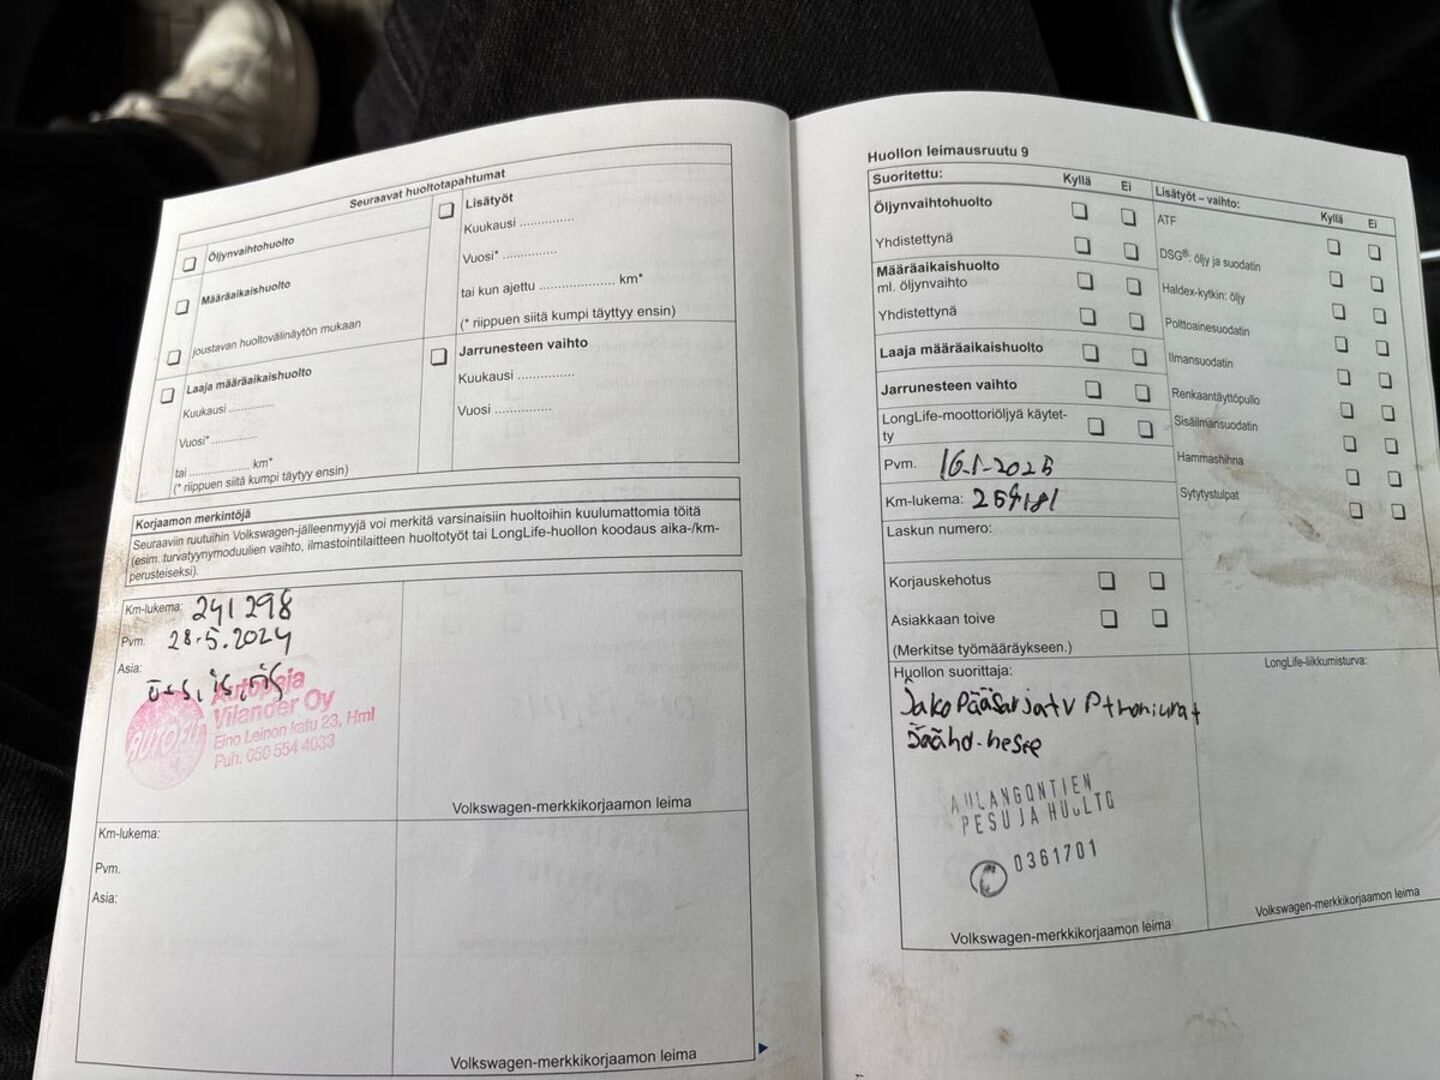 Seuraavat huoltotapahtumat
Öljynvaihtohuolto
Määräaikaishuolto
joustavan huoltovälinäytön mukaan
Laaja määräaikaishuolto
Kuukausi ..............
Vuosi* ..............
tai .................... km*
(* riippuen siitä kumpi täytyy ensin)
Lisätyöt
Kuukausi ..............
Vuosi* ..............
tai kun ajettu .................... km*
(* riippuen siitä kumpi täyttyy ensin)
Jarrunesteen vaihto
Kuukausi ..............
Vuosi ..............
Korjaamon merkintöjä
Seuraaviin ruutuihin Volkswagen-jälleenmyyjä voi merkitä varsinaisiin huoltoihin kuulumattomia töitä
(esim. turvatyynymoduulien vaihto, ilmastointilaitteen huoltotyöt tai LongLife-huollon koodaus aika-/km-
perusteiseksi).
Km-lukema: 241 298
Pvm. 28.5.2024
Asia:
Autopaja
Vilander Oy
Eino Leinon katu 23, Hml
Puh. 050 554 4033
Volkswagen-merkkikorjaamon leima
Km-lukema:
Pvm.
Asia:
Volkswagen-merkkikorjaamon leima
Huollon leimausruutu 9
Suoritettu: Kyllä Ei
Öljynvaihtohuolto
Yhdistettynä
Määräaikaishuolto
ml. öljynvaihto
Yhdistettynä
Laaja määräaikaishuolto
Jarrunesteen vaihto
LongLife-moottoriöljyä käytet-
ty
Pvm. 16.1-2025
Km-lukema:
Laskun numero:
Korjauskehotus
Asiakkaan toive
(Merkitse työmääräykseen.)
Huollon suorittaja:
Jako Pääsarjat
AULANGONTIEN
PESU JA HUOLTO
0361701
Volkswagen-merkkikorjaamon leima
Lisätyöt – vaihto: Kyllä Ei
ATF
DSG®: öljy ja suodatin
Haldex-kytkin: öljy
Polttoainesuodatin
Ilmansuodatin
Renkaantäyttöpullo
Sisäilmansuodatin
Hammashihna
Sytytystulpat
LongLife-liikkumisturva:
Volkswagen-merkkikorjaamon leima